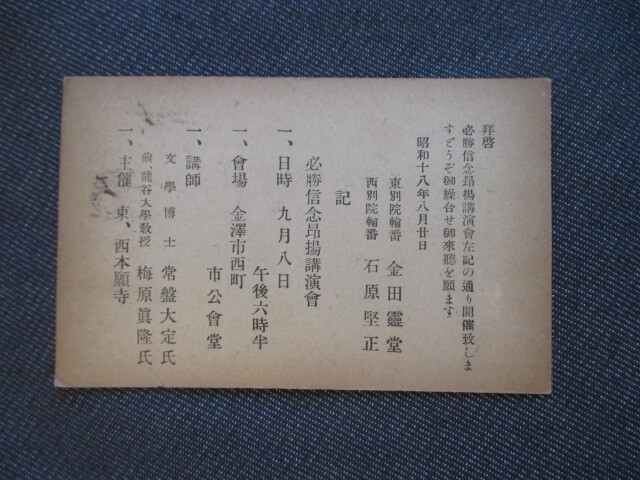 拜啓
必勝信念昂揚講演會左記の通り開催致しま
すどうぞ御繰合せ御來聽を願ます
昭和十八年八月廿日
東別院輪番 金田靈堂
西別院輪番 石原堅正
記
必勝信念昂揚講演會
一、日時 九月八日
午後六時半
一、會場 金澤市西町
市公會堂
一、講師
文學博士 常盤大定氏
前、龍谷大學教授 梅原眞隆氏
一、主催 東、西本願寺